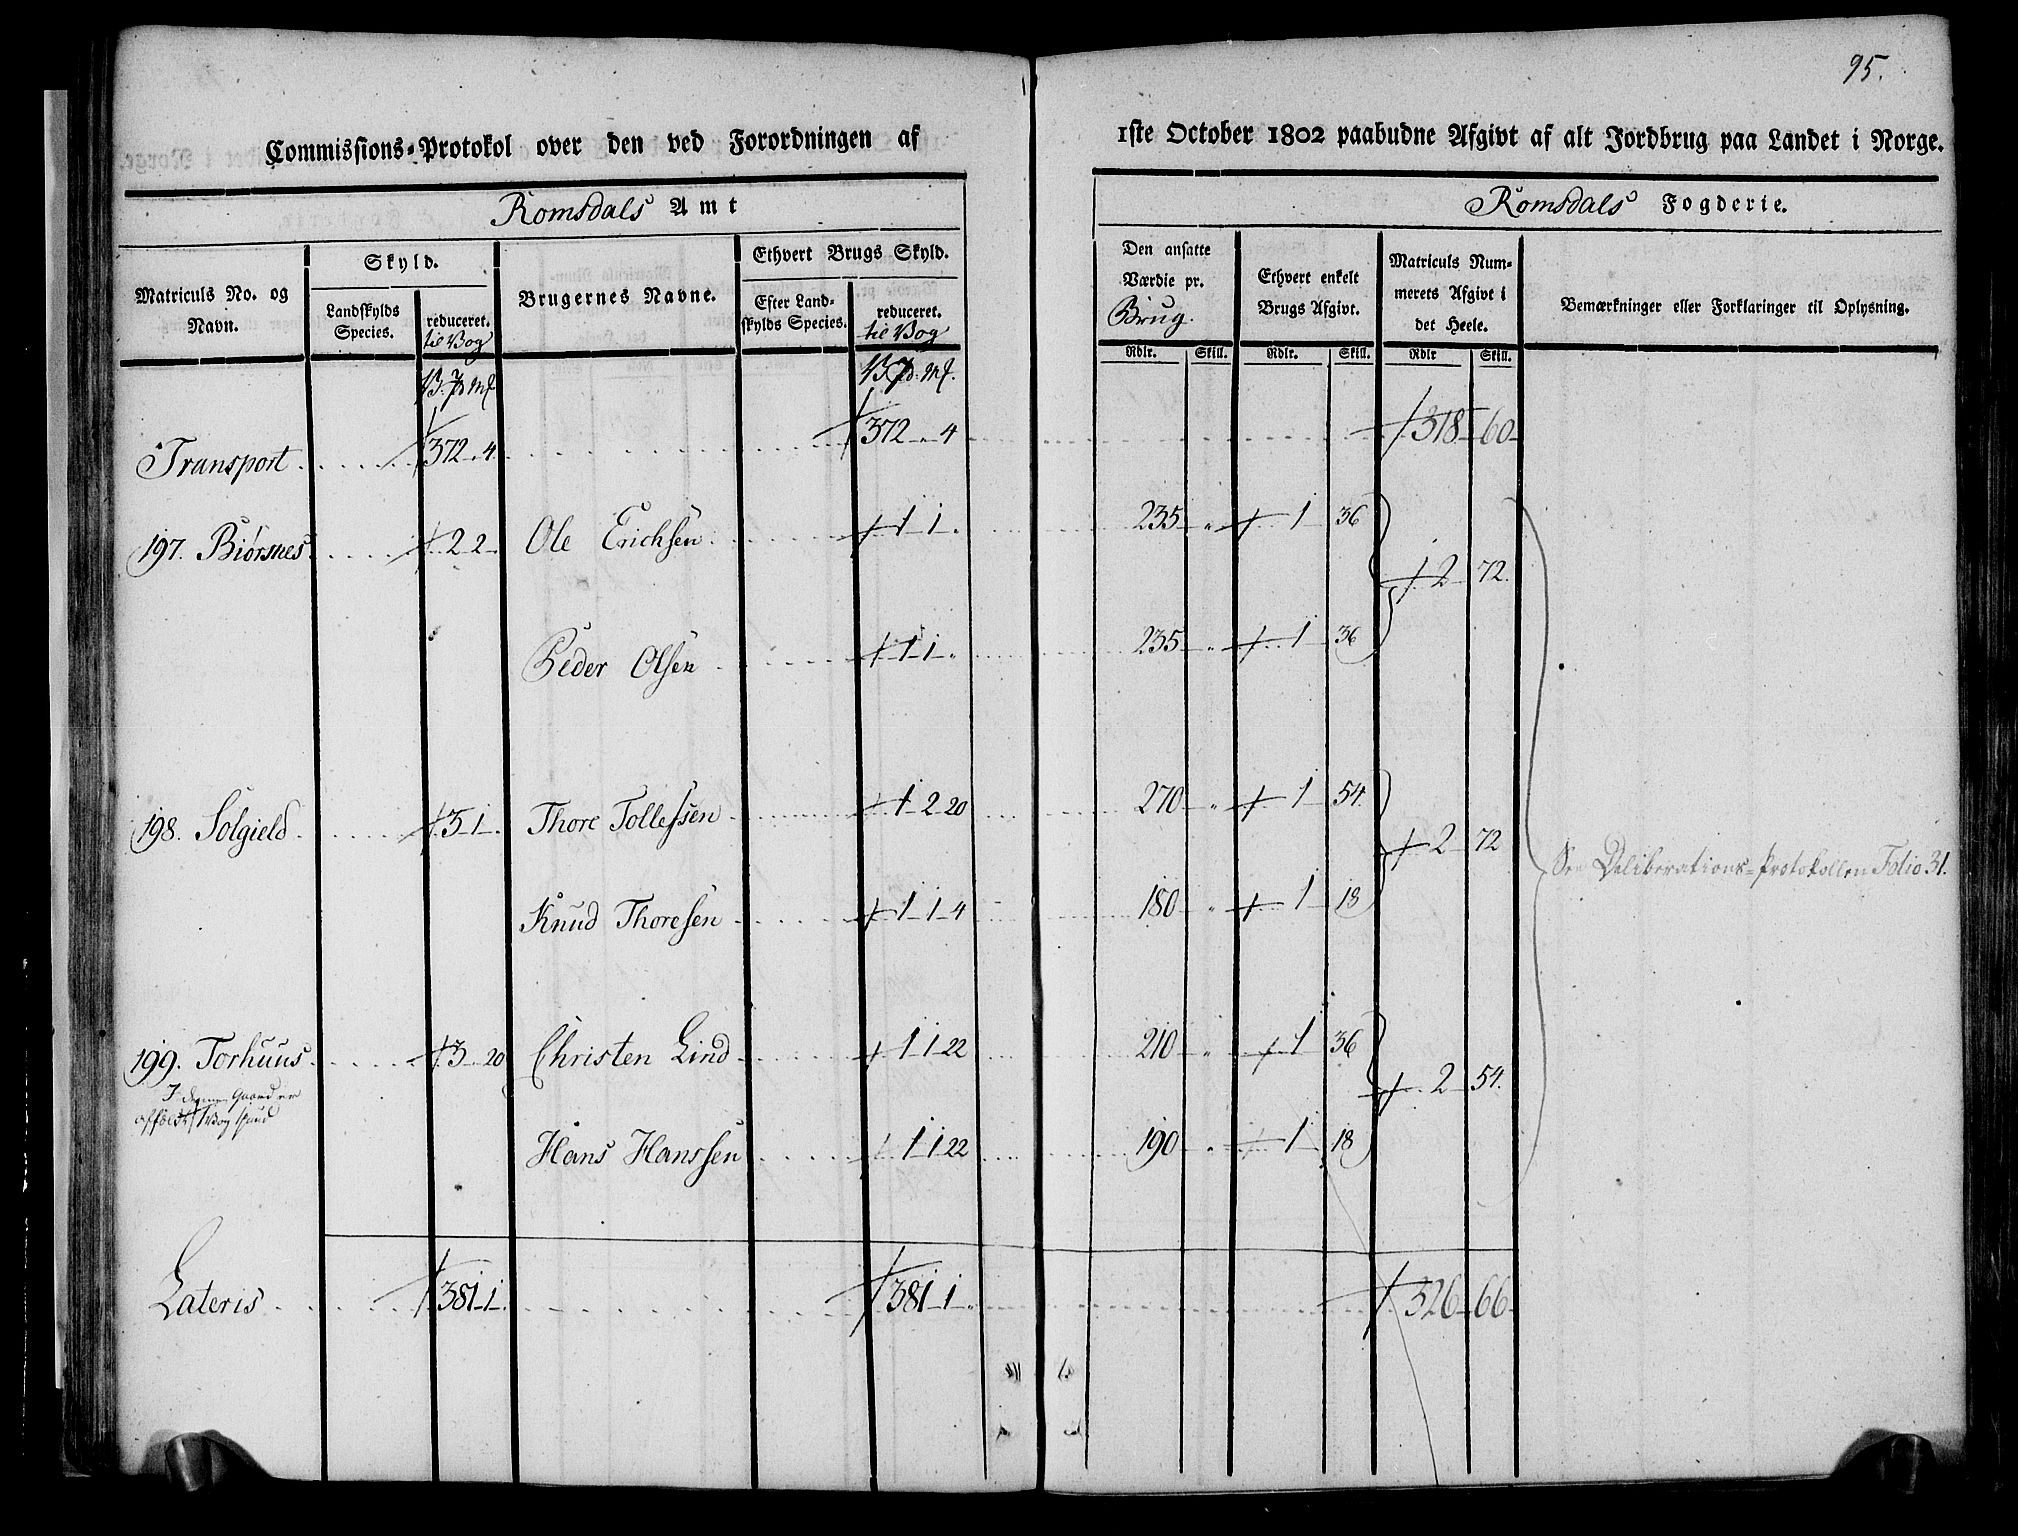 95.
Commissions-Protokol over den ved Forordningen af 1ste October 1802 paabudne Afgivt af alt Jordbrug paa Landet i Norge.
Romsdals Amt
Romsdals Fogderie.
Matriculs No. og Navn.
Skyld.
Landskylds Species.
reduceret. til Vog
Brugernes Navne.
Ethvert Brugs Skyld.
Efter Landskylds Species.
reduceret. til Vog
Den ansatte Værdie pr. Brug.
Ethvert enkelt Brugs Afgivt.
Matriculs Nummerets Afgivt i det Heele.
Bemærkninger eller Forklaringer til Oplysning.
Rdlr. Skill. Rdlr. Skill. Rdlr Skill.
Transport 372 " 4 372 " 4 318 60
197. Biørsnes 2 2 Ole Erichsen 1 1 " 235 " 1 36
2 72.
Peder Olsen 1 1 " 235 " 1 36
198. Solgield 3 1 Thore Tollefsen 1 2 20 270 " 1 54.
2 72
See Deliberations-Protokollen Folio 31.
Knud Thoresen 1 1 4 180 " 1 18
199. Torhuus 3 20 Christen Lind 1 1 22 210 " 1 36
I denne Gaard er
2 54.
Hans Hanssen 1 1 22 190 " 1 18
Lateris 381 1 381 1 " 326 66